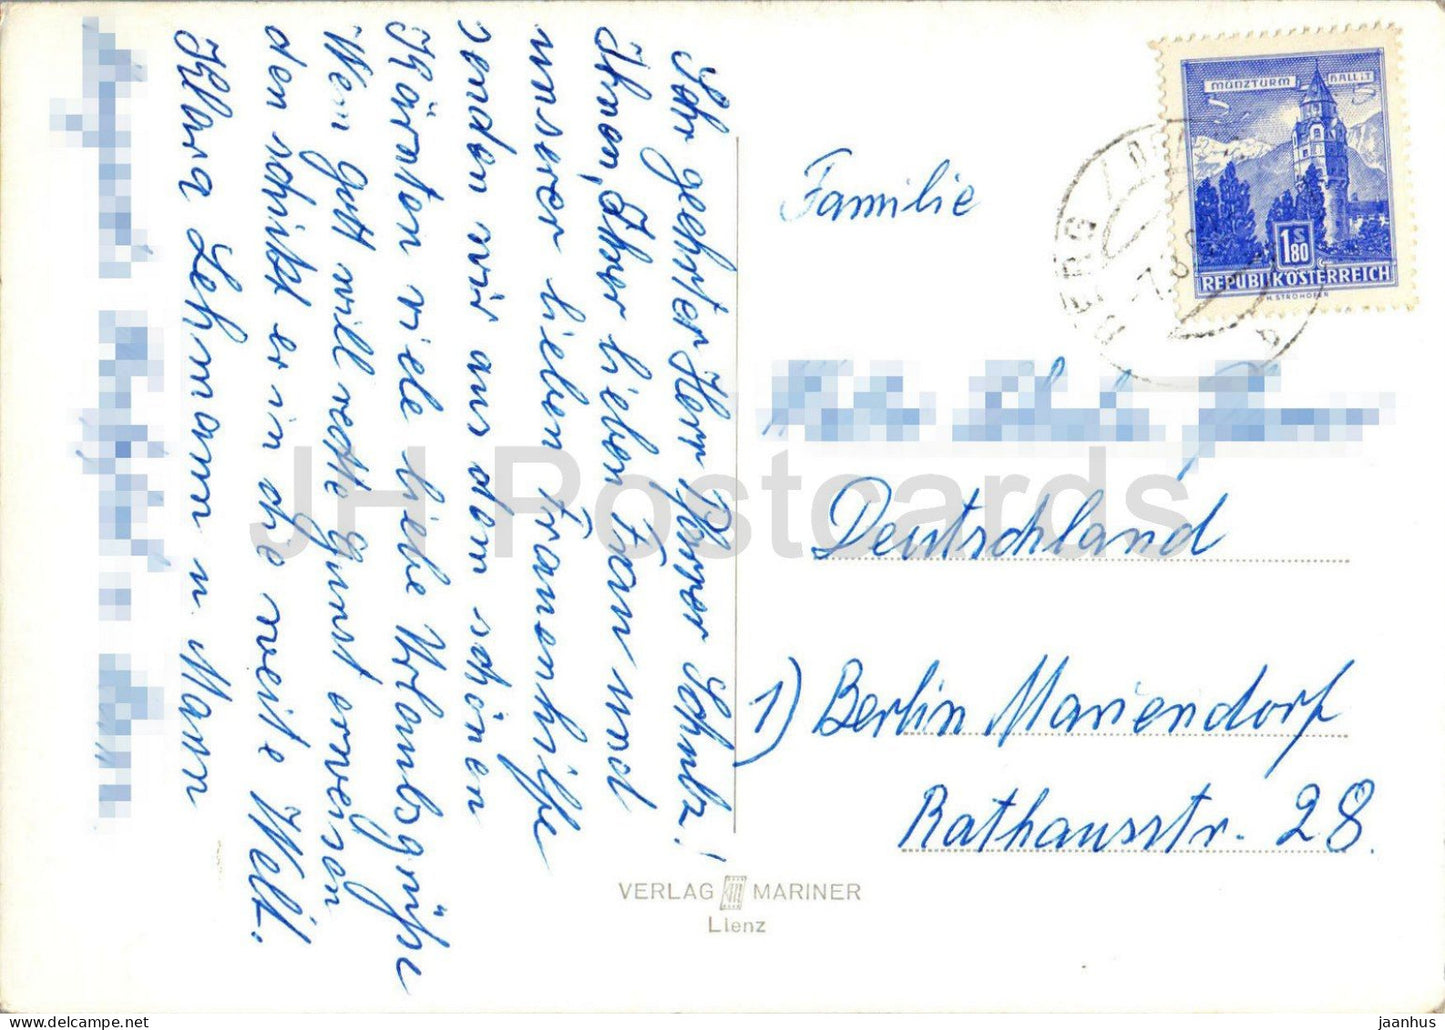 Sehr geehrter Herr Pfarrer Schulz!
Ihnen, Ihrer lieben Frau und
unserer lieben Frauenhilfe
senden wir aus dem schönen
Kärnten viele liebe Urlaubsgrüße
Wem gott will rechte Gunst erweisen
den schickt er in die weite Welt.
Klara Lehmann u. Mann
MÜNZTURM HALL i.T.
1.80 S
REPUBLIK ÖSTERREICH
H. STROHOFER
BERG
7.8
Familie
Deutschland
1) Berlin Mariendorf
Rathausstr. 28.
VERLAG MARINER
Lienz
JH Postcards
jaanhus